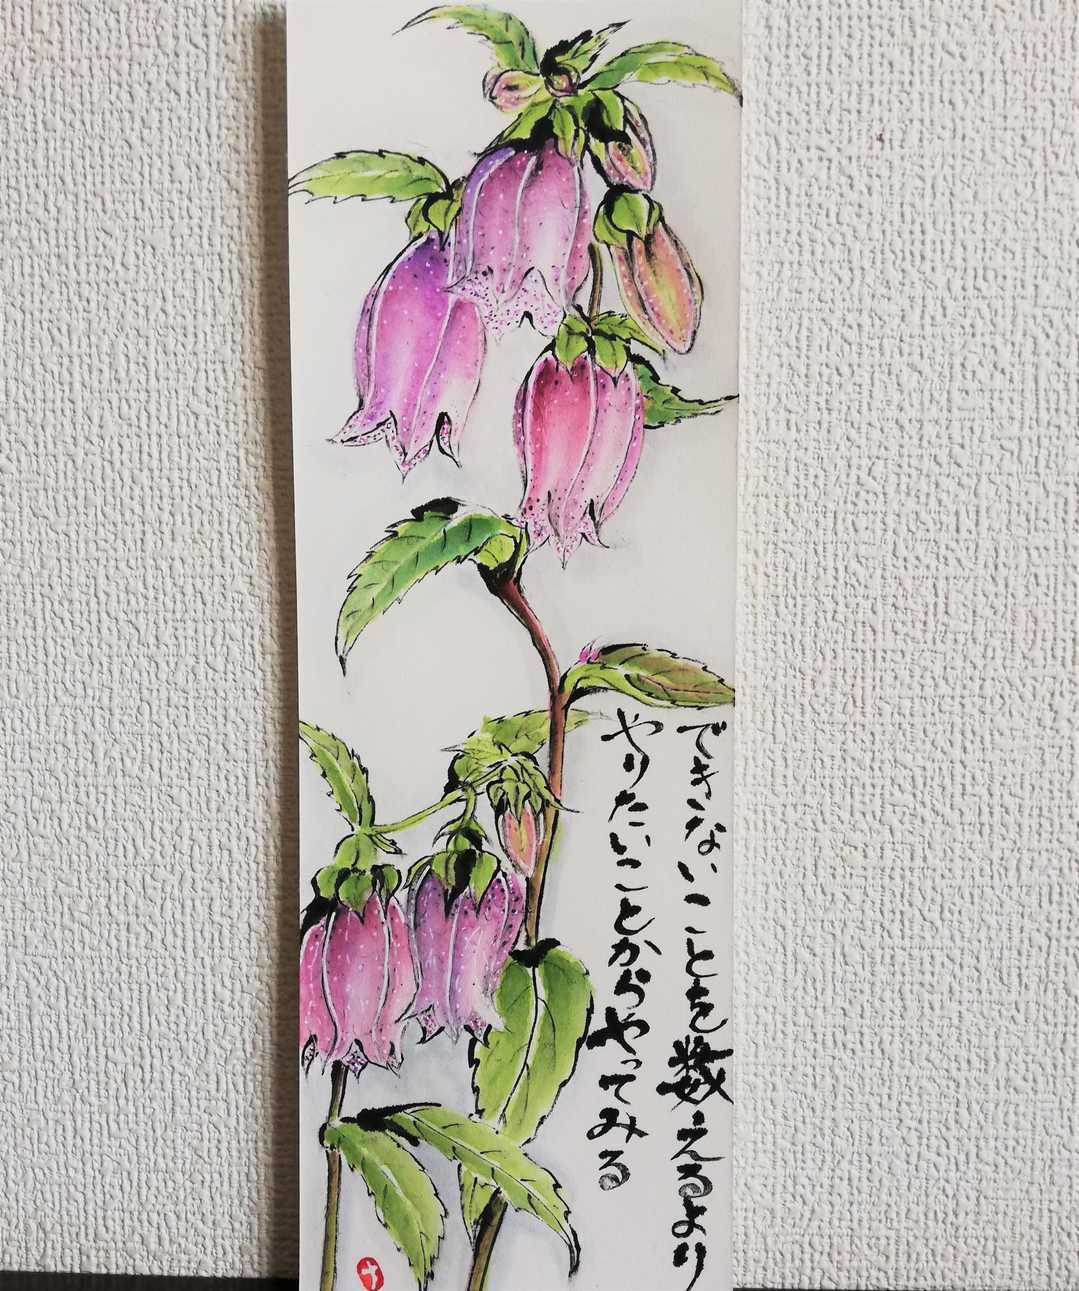 できないことを数えるより
やりたいことからやってみる
ナ